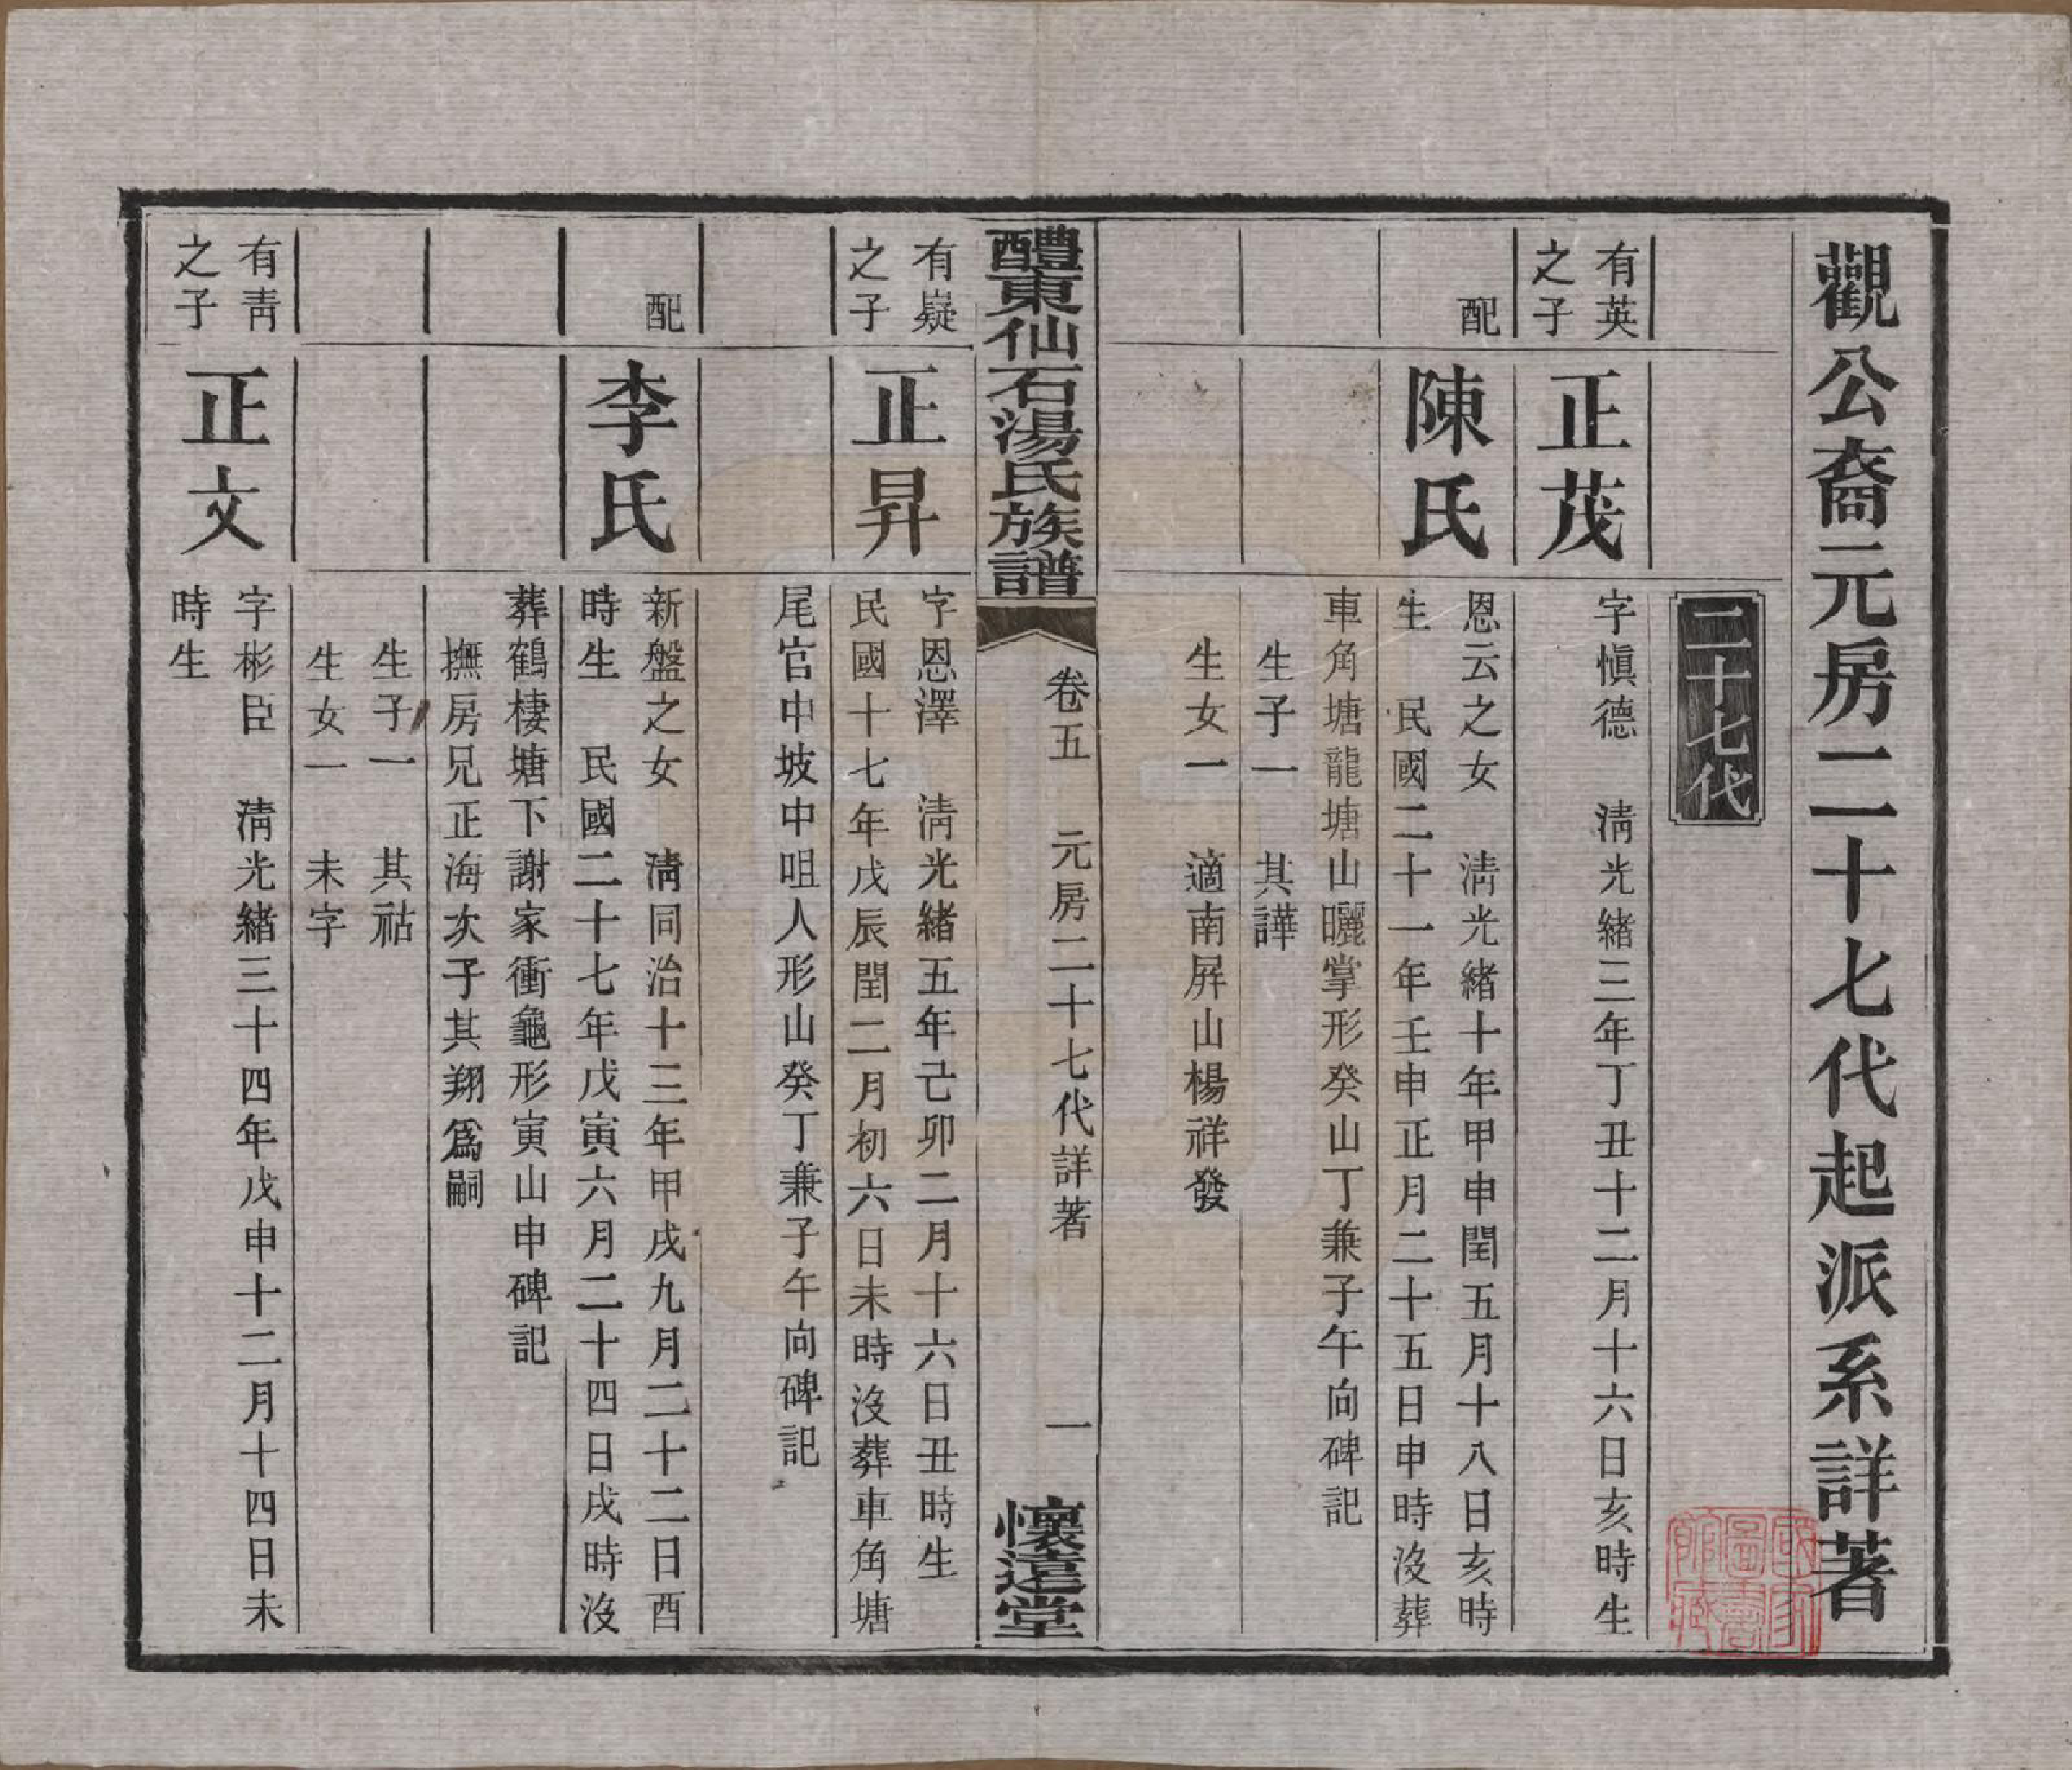 觀公裔元房二十七代起派系詳著
二十七代
有英
之子
正茂
字愼德　淸光緒三年丁丑十二月十六日亥時生
配
陳氏
恩云之女　淸光緒十年甲申閏五月十八日亥時
生　民國二十一年壬申正月二十五日申時沒葬
車角塘龍塘山曬掌形癸山丁兼子午向碑記
生子一　其譁
生女一　適南屛山楊祥發
醴東仙石湯氏族譜
卷五　元房二十七代詳著
一
懷遠堂
有嶷
之子
正昇
字恩澤　淸光緒五年己卯二月十六日丑時生
民國十七年戊辰閏二月初六日未時沒葬車角塘
尾官中坡中咀人形山癸丁兼子午向碑記
配
李氏
新盤之女　淸同治十三年甲戌九月二十二日酉
時生　民國二十七年戊寅六月二十四日戌時沒
葬鶴棲塘下謝家衝龜形寅山申碑記
撫房兄正海次子其翔爲嗣
生子一　其祜
生女一　未字
有靑
之子
正文
字彬臣　淸光緒三十四年戊申十二月十四日未
時生
國家
圖書
館藏